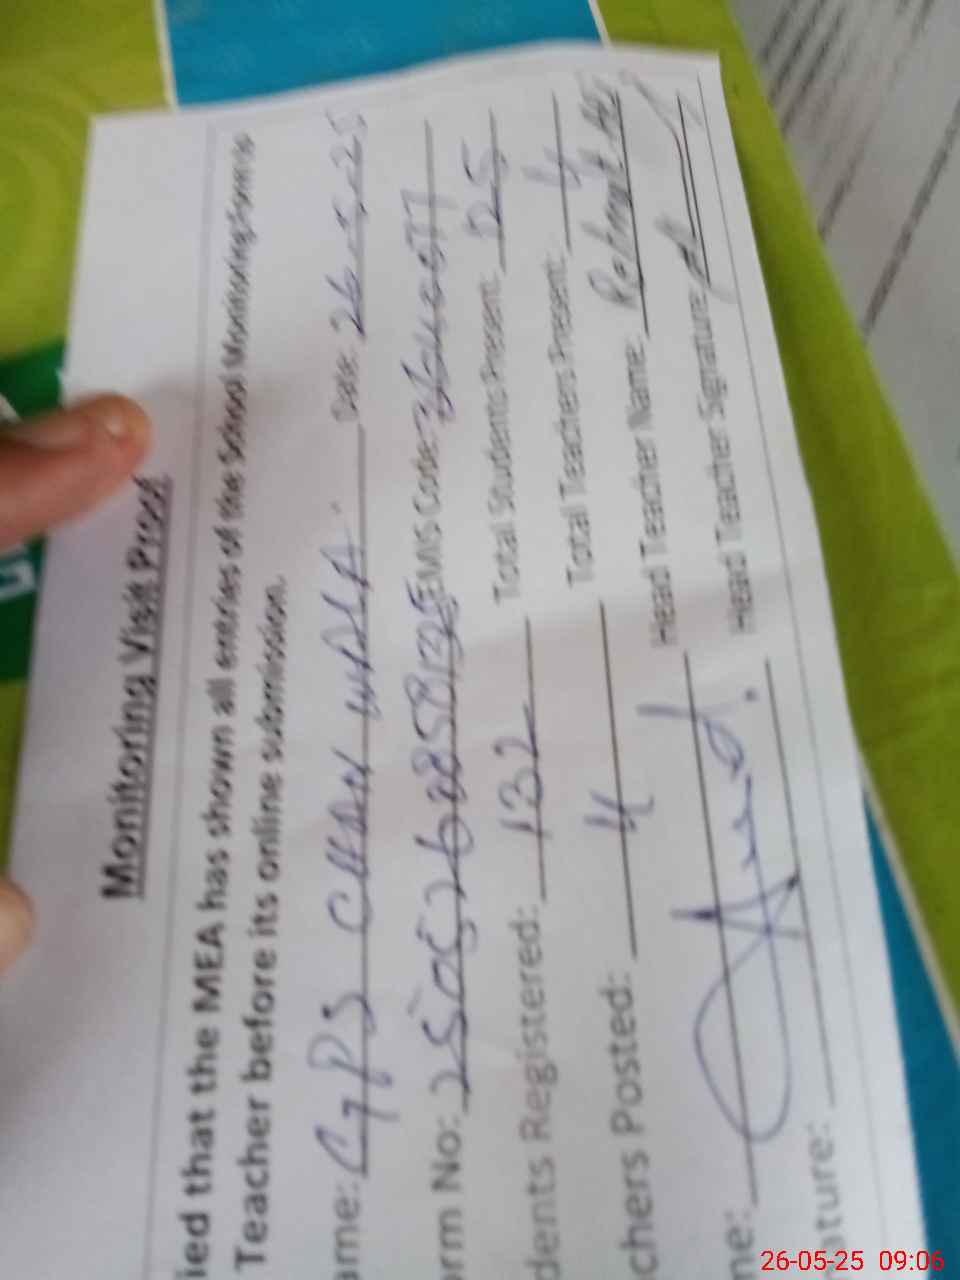 Monitoring Visit Proof
ied that the MEA has shown all entries of the School Monitoring Form to
Teacher before its online submission.
ame: GPS CHAH WALA. Date: 26-5-25
orm No: EMIS Code:
dents Registered: 132 Total Students Present: 125
chers Posted: 4 Total Teachers Present: 4
me: Head Teacher Name:
ature: Head Teacher Signature:
26-05-25 09:06